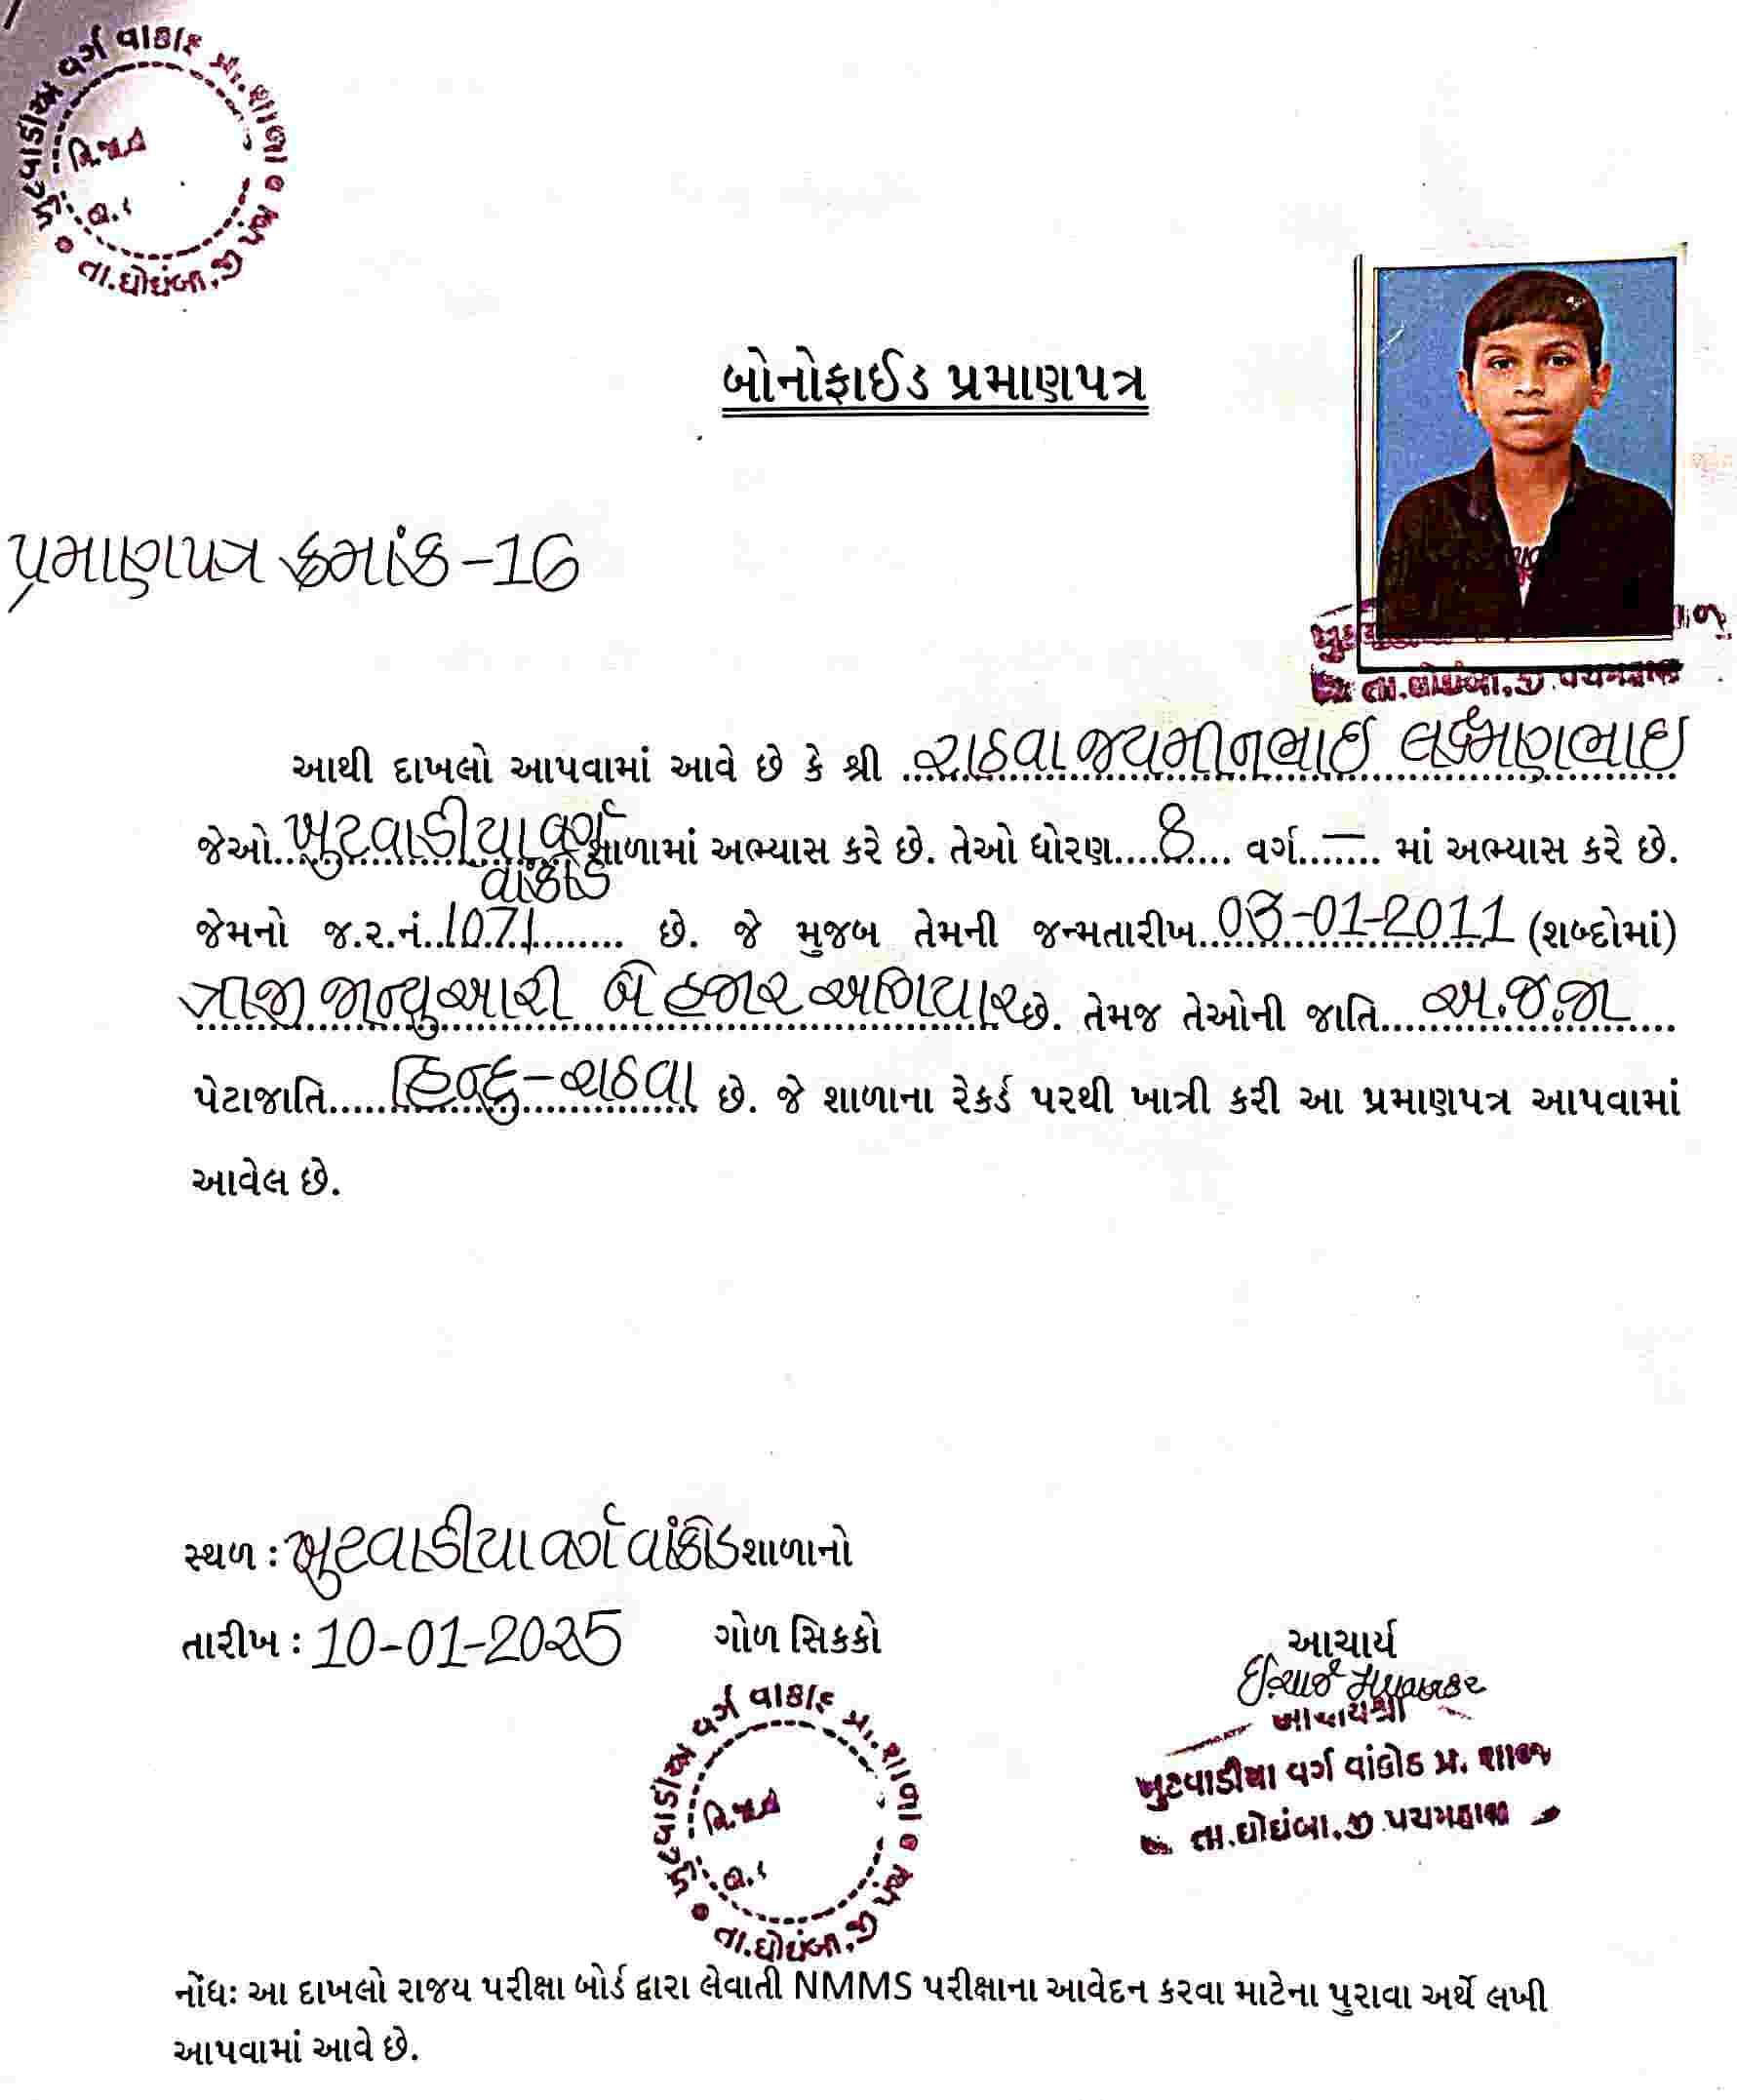 વર્ગ વાકોઢ પ્રા.શાળા
તા.ઘોઘંબા,જી
બોનોફાઈડ પ્રમાણપત્ર
પ્રમાણપત્ર ક્રમાંક-16
તા.ઘોઘંબા,જી.પંચમહાલ
આથી દાખલો આપવામાં આવે છે કે શ્રી રાઠવા જયમીનભાઈ લક્ષ્મણભાઈ
જેઓ..ખુટવાડીયા વર્ગ શાળામાં અભ્યાસ કરે છે. તેઓ ધોરણ....8.... વર્ગ...—.... માં અભ્યાસ કરે છે.
વાંકોડ
જેમનો જ.ર.નં..1071......... છે. જે મુજબ તેમની જન્મતારીખ..03-01-2011 (શબ્દોમાં)
ત્રીજી જાન્યુઆરી બે હજાર અગિયાર છે. તેમજ તેઓની જાતિ....અ.જ.જા....
પેટાજાતિ......હિન્દુ-રાઠવા છે. જે શાળાના રેકર્ડ પરથી ખાત્રી કરી આ પ્રમાણપત્ર આપવામાં
આવેલ છે.
સ્થળ : ખુટવાડીયા વર્ગ વાંકોડ શાળાનો
તારીખ : 10-01-2025 ગોળ સિકકો
આચાર્ય
આચાર્યશ્રી
ખુટવાડીયા વર્ગ વાંકોઠ પ્રા. શાળા
તા.ઘોઘંબા.જી.પંચમહાલ
વર્ગ વાકોઢ પ્રા.શાળા
તા.ઘોઘંબા,જી
નોંધઃ આ દાખલો રાજય પરીક્ષા બોર્ડ દ્વારા લેવાતી NMMS પરીક્ષાના આવેદન કરવા માટેના પુરાવા અર્થે લખી
આપવામાં આવે છે.